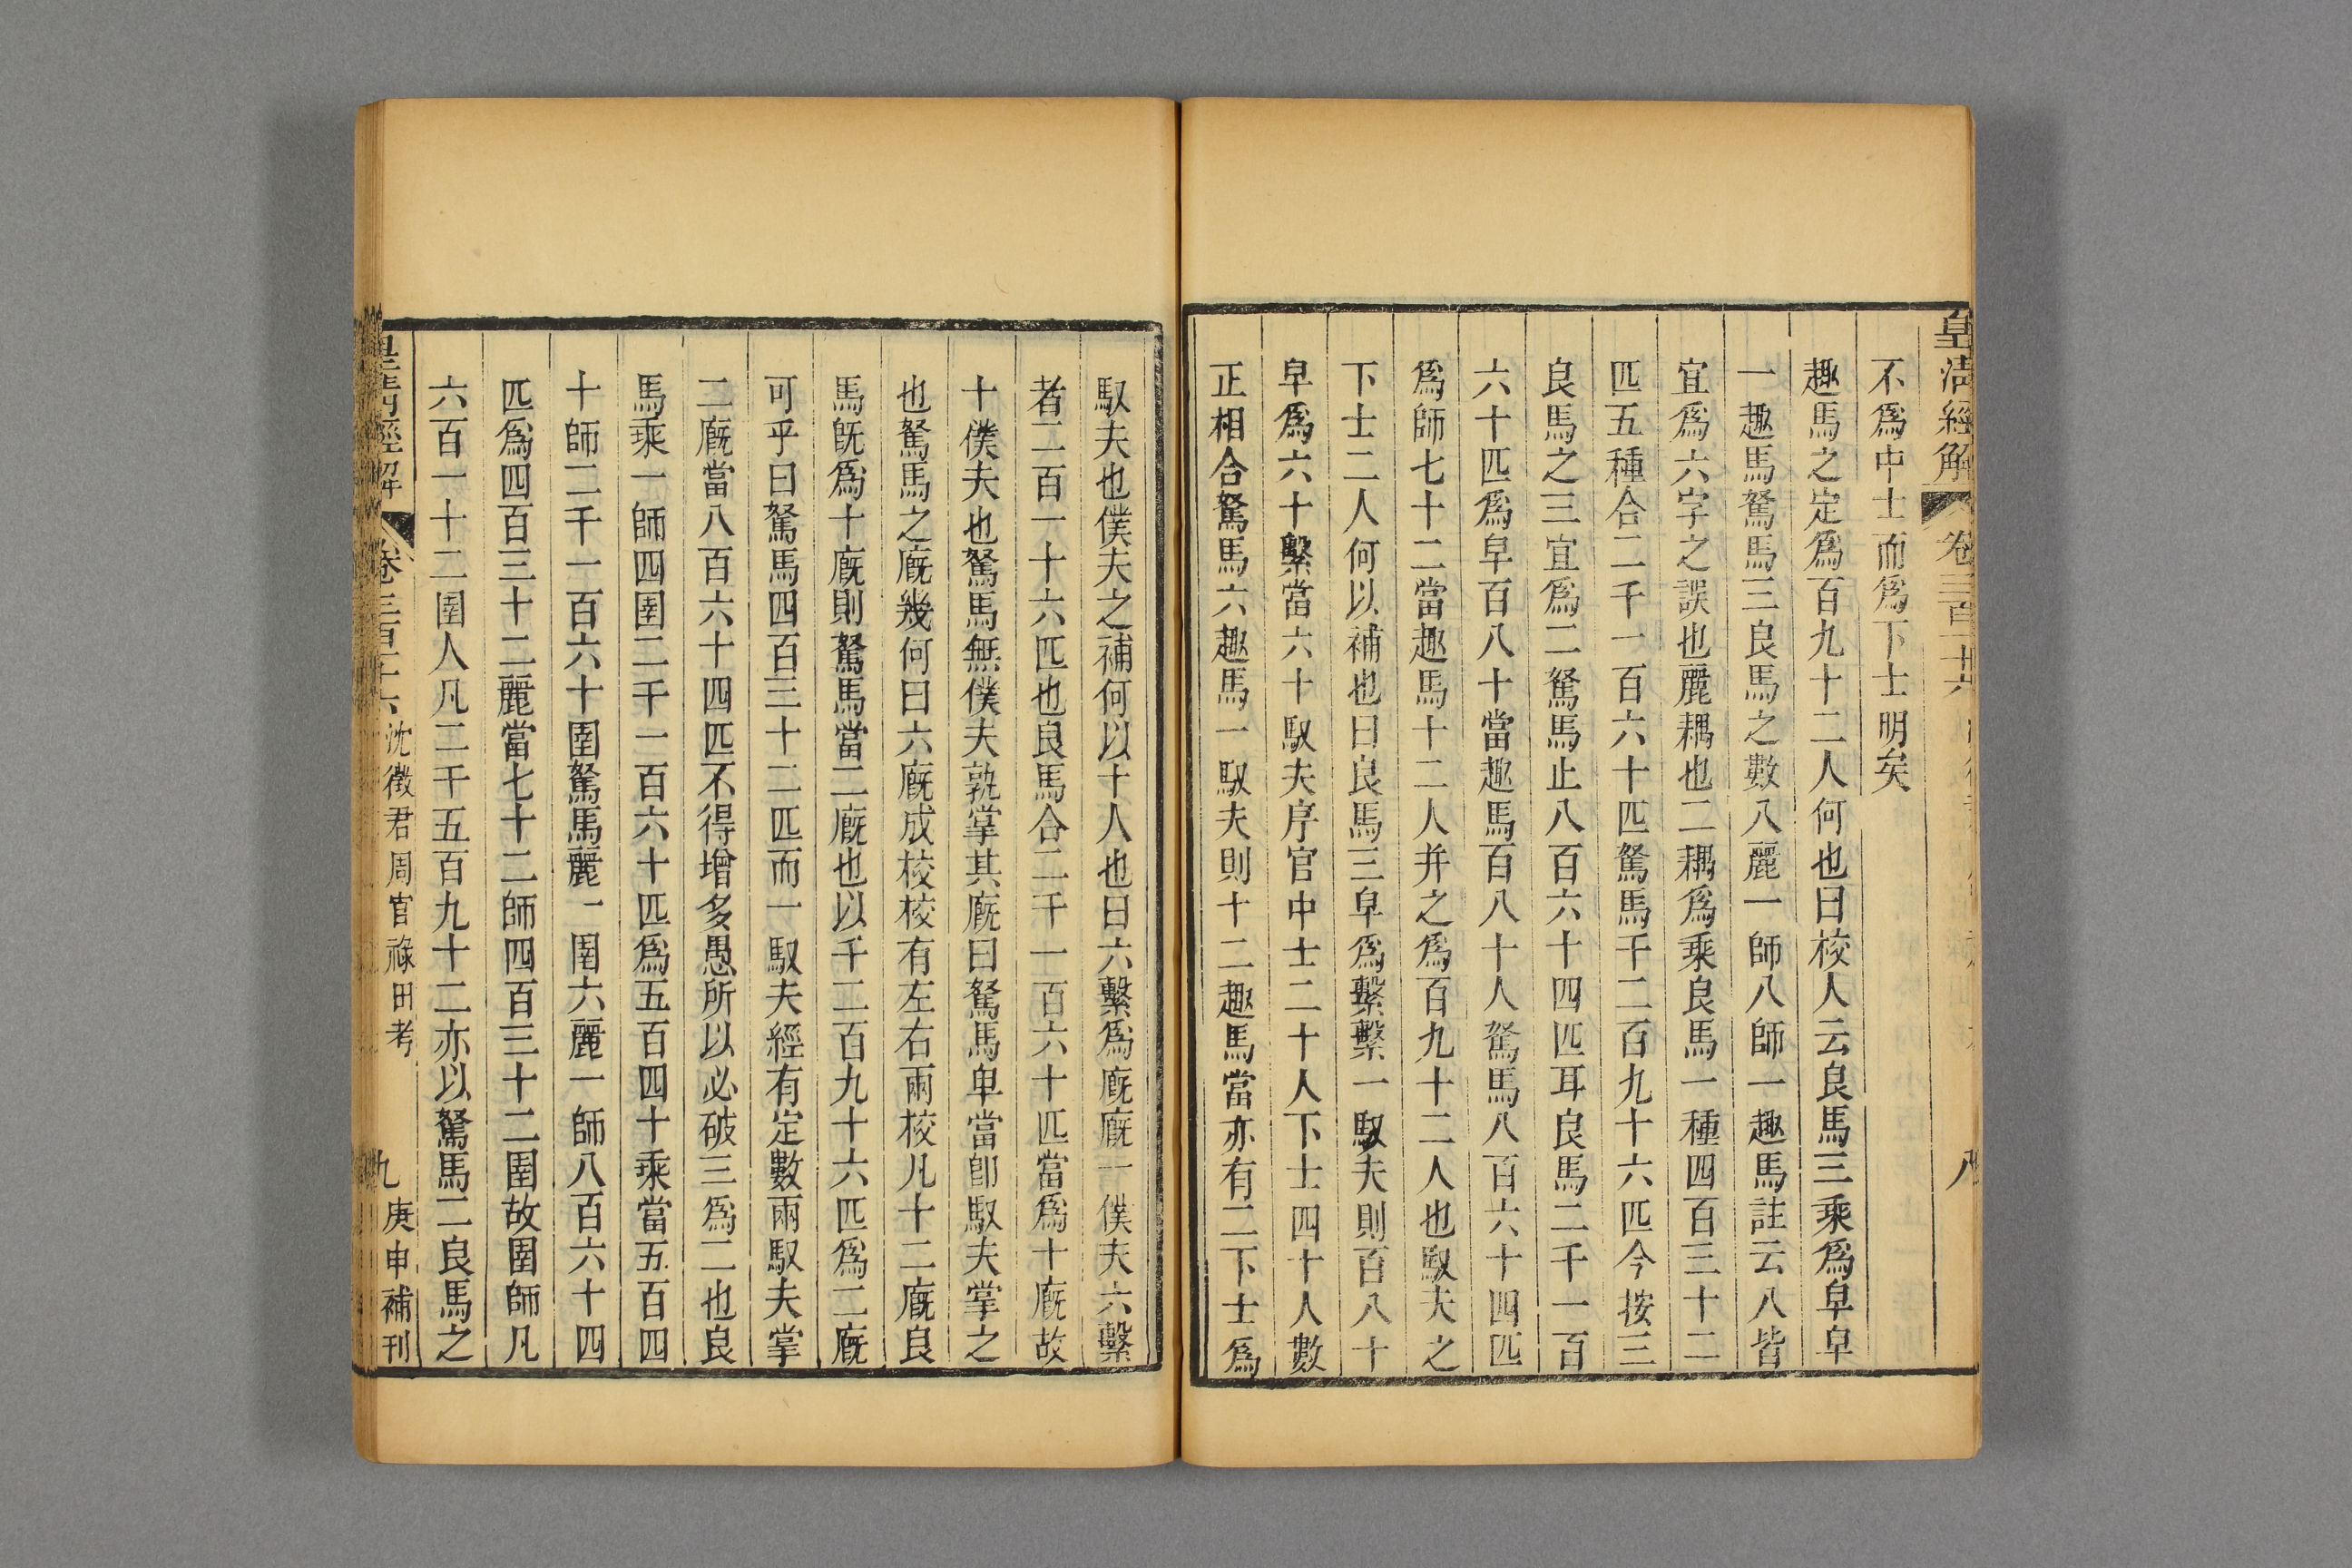 皇清經解
卷三百十六
八
不爲中士而爲下士明矣
趣馬之定爲百九十二人何也曰校人云良馬三乘爲皁皁
一趣馬駑馬三良馬之數八麗一師八師一趣馬註云八皆
宜爲六字之誤也麗耦也二耦爲乘良馬一種四百三十二
匹五種合二千一百六十匹駑馬千二百九十六匹今按三
良馬之三宜爲二駑馬止八百六十四匹耳良馬二千一百
六十匹爲皁百八十當趣馬百八十人駑馬八百六十四匹
爲師七十二當趣馬十二人并之爲百九十二人也馭夫之
下士二人何以補也曰良馬三皁爲繫繫一馭夫則百八十
皁爲六十繫當六十馭夫序官中士二十人下士四十人數
正相合駑馬六趣馬一馭夫則十二趣馬當亦有二下士爲
馭夫也僕夫之補何以十人也曰六繫爲廐廐一僕夫六繫
者二百一十六匹也良馬合二千一百六十匹當爲十廐故
十僕夫也駑馬無僕夫孰掌其廐曰駑馬卑當卽馭夫掌之
也駑馬之廐幾何曰六廐成校校有左右兩校凡十二廐良
馬旣爲十廐則駑馬當二廐也以千二百九十六匹爲二廐
可乎曰駑馬四百三十二匹而一馭夫經有定數兩馭夫掌
二廐當八百六十四匹不得增多愚所以必破三爲二也良
馬乘一師四圉二千一百六十匹爲五百四十乘當五百四
十師二千一百六十圉駑馬麗一圉六麗一師八百六十四
匹爲四百三十二麗當七十二師四百三十二圉故圉師凡
六百一十二圉人凡二千五百九十二亦以駑馬二良馬之
皇清經解
卷三百十六
沈徵君周官祿田考
九
庚申補刊